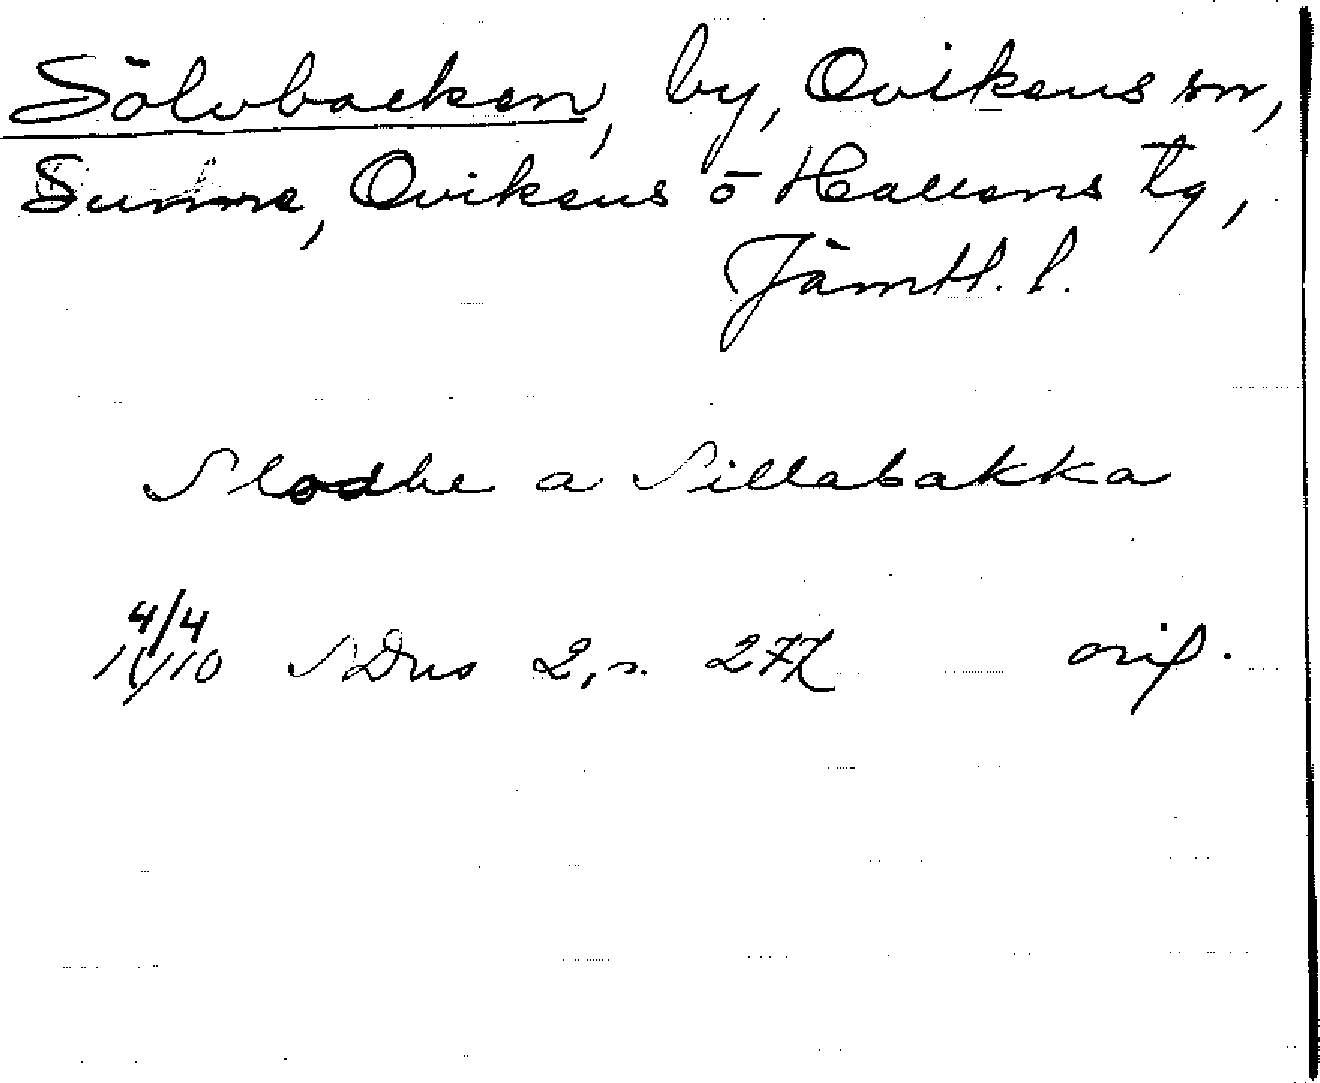 Sölvbacken, by, Ovikens sn,
Sunne, Ovikens o Hallens tg,
Jämtl. l.
Slodhe a Sillabakka
4/4
1410 SDns 2, s. 277 orig.